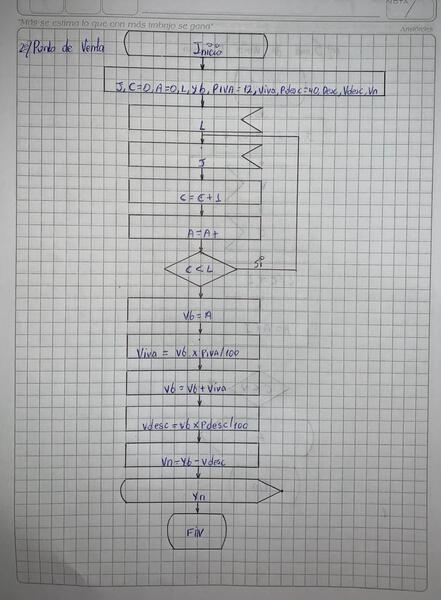 "Más se estima lo que con más trabajo se gana"
Aristóteles
NOTA
2) Punto de Venta
Inicio
J, C=0, A=0, L, Vb, PIVA=12, Viva, Pdesc=40, Desc, Vdesc, Vn
L
J
C = C + 1
A = A +
C < L
Si
Vb = A
Viva = Vb x PIVA/100
Vb = Vb + Viva
Vdesc = Vb x Pdesc/100
Vn = Vb - Vdesc
Vn
FIN